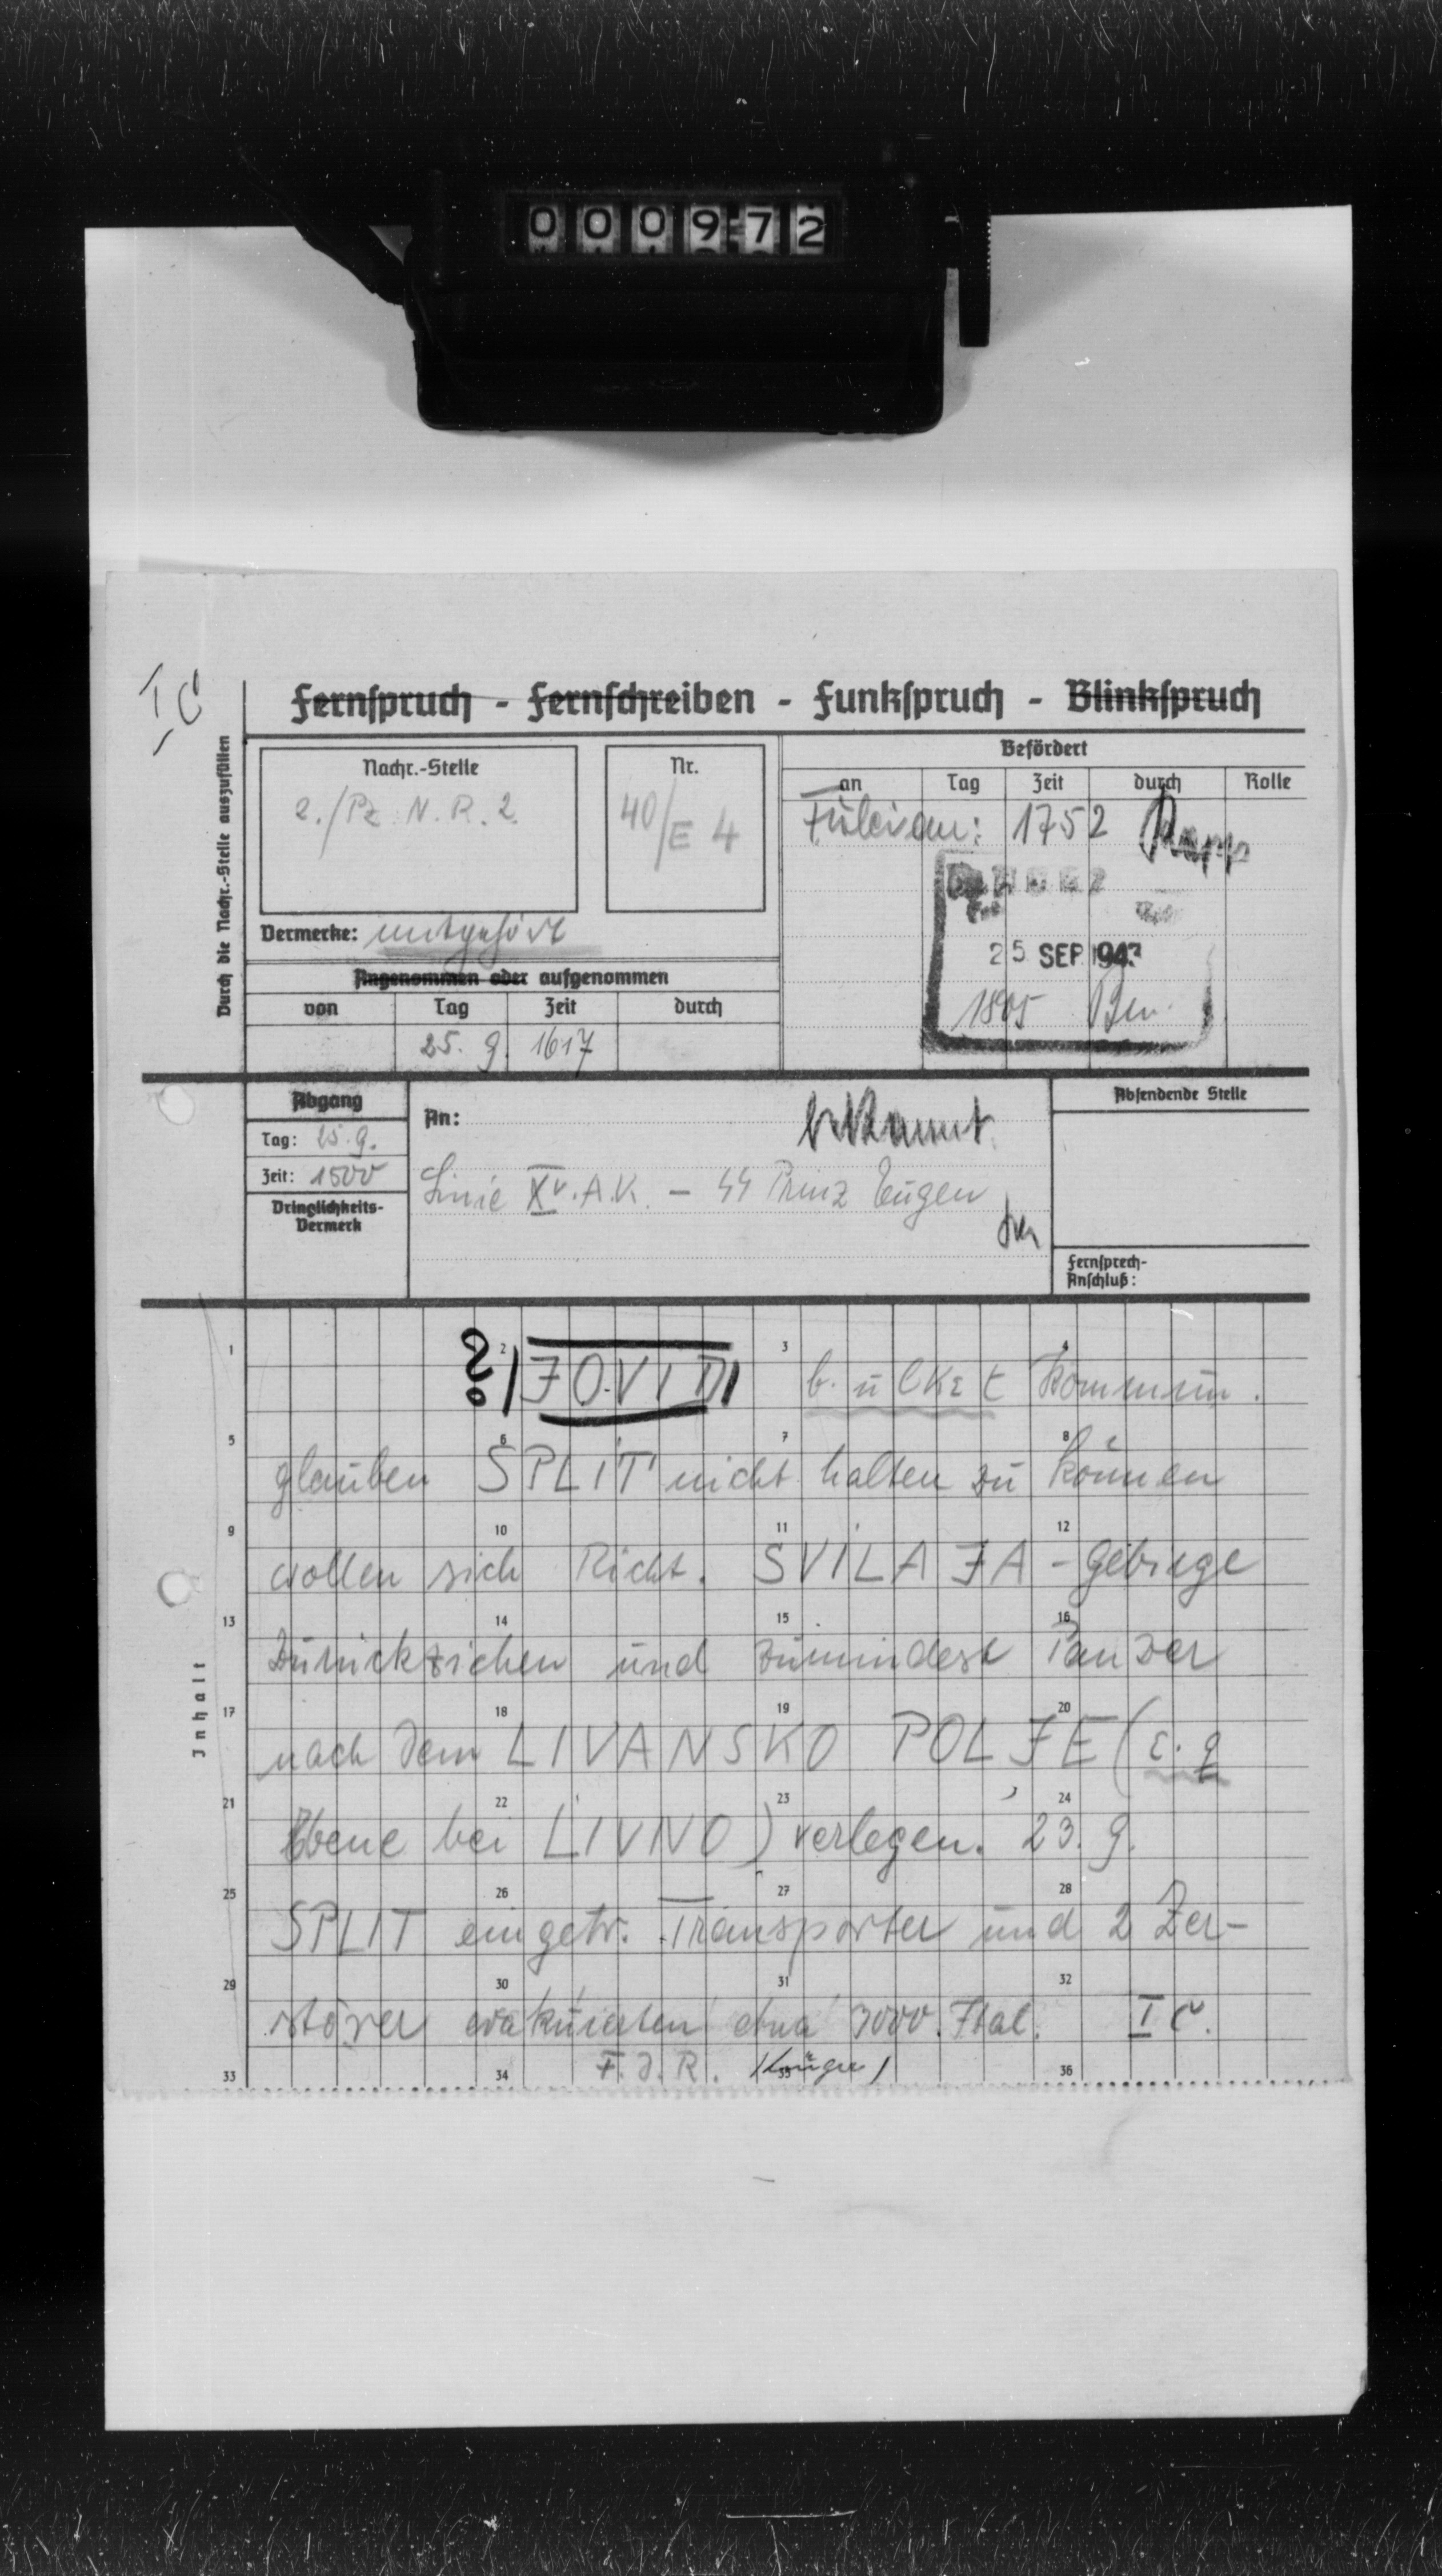 000972
Ic
Fernspruch - Fernschreiben - Funkspruch - Blinkspruch
Durch die Nachr.-Stelle auszufüllen
Nachr.-Stelle
2./Pz. N. R. 2.
Nr.
40/E 4
Befördert
an Tag Zeit durch Rolle
1752
25 SEP. 1943
1805
Vermerke: mitgehört
Angenommen oder aufgenommen
von Tag Zeit durch
25. 9. 1617
Abgang
Tag: 25.9.
Zeit: 1500
Dringlichkeits-
Vermerk
An: bekannt
Linie XV. A.K. - SS Prinz Eugen
Absendende Stelle
Fernsprech-
Anschluß:
Inhalt
1 2 3 4
? JO.VI kommun.
5 6 7 8
glauben SPLIT nicht halten zu können
9 10 11 12
wollen sich Richt. SVILAJA - Gebirge
13 14 15 16
zurückziehen und zumindest Panzer
17 18 19 20
nach dem LIVANSKO POLJE (
21 22 23 24
Ebene bei LIVNO) verlegen. 23. 9.
25 26 27 28
SPLIT eingetr. Transporter und 2 Zer-
29 30 31 32
störer evakuierten etwa 3000. Ital. Ic.
33 34 35 36
F.d.R. Krüger